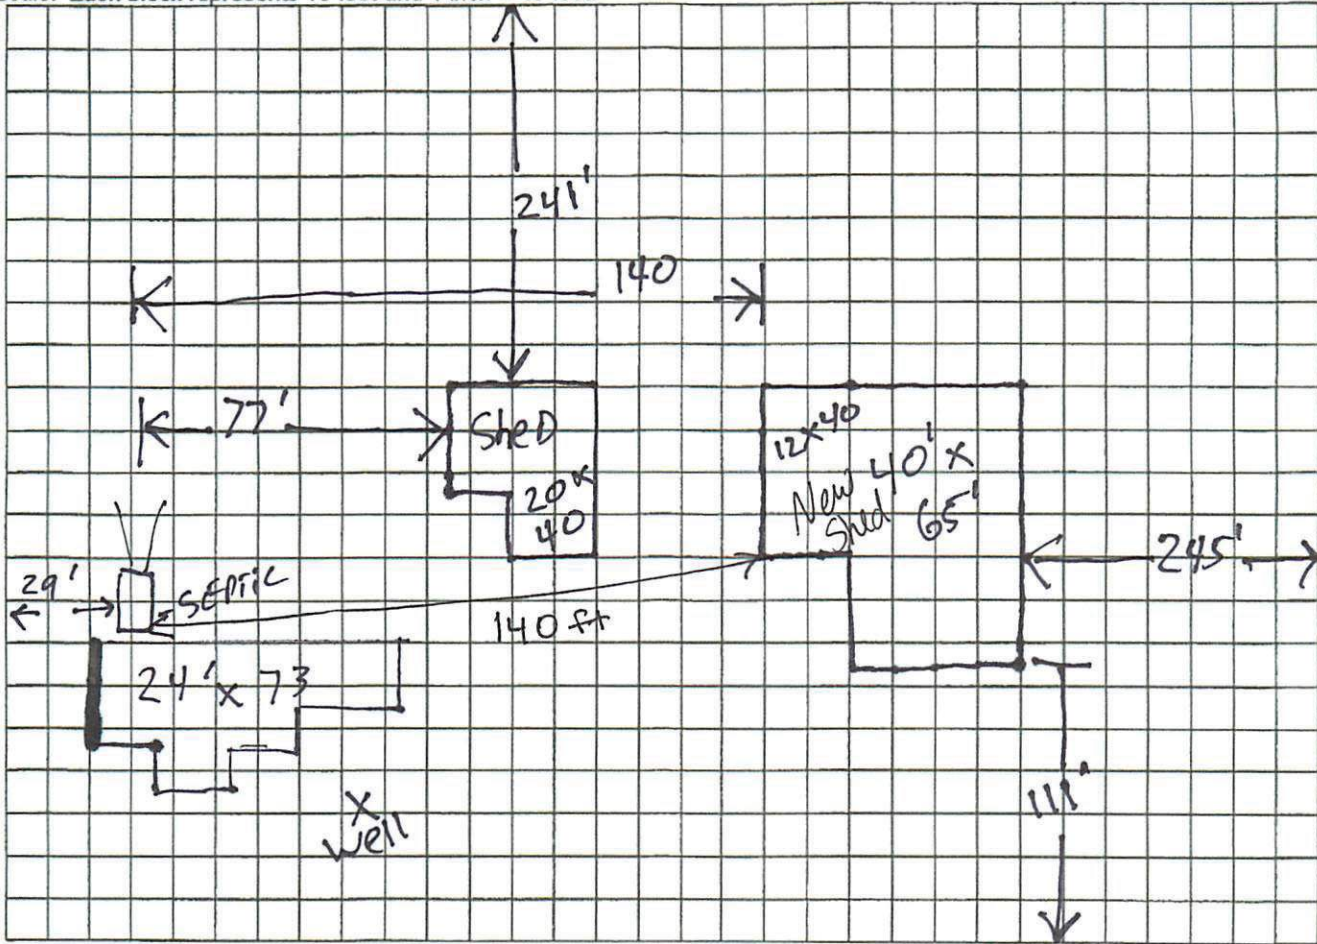 241'
140
77'
SheD
20x
40
12x40
New 40' x
Shed 65'
245'
29'
SEPTIC
140 ft
24' x 73
111'
X
Well